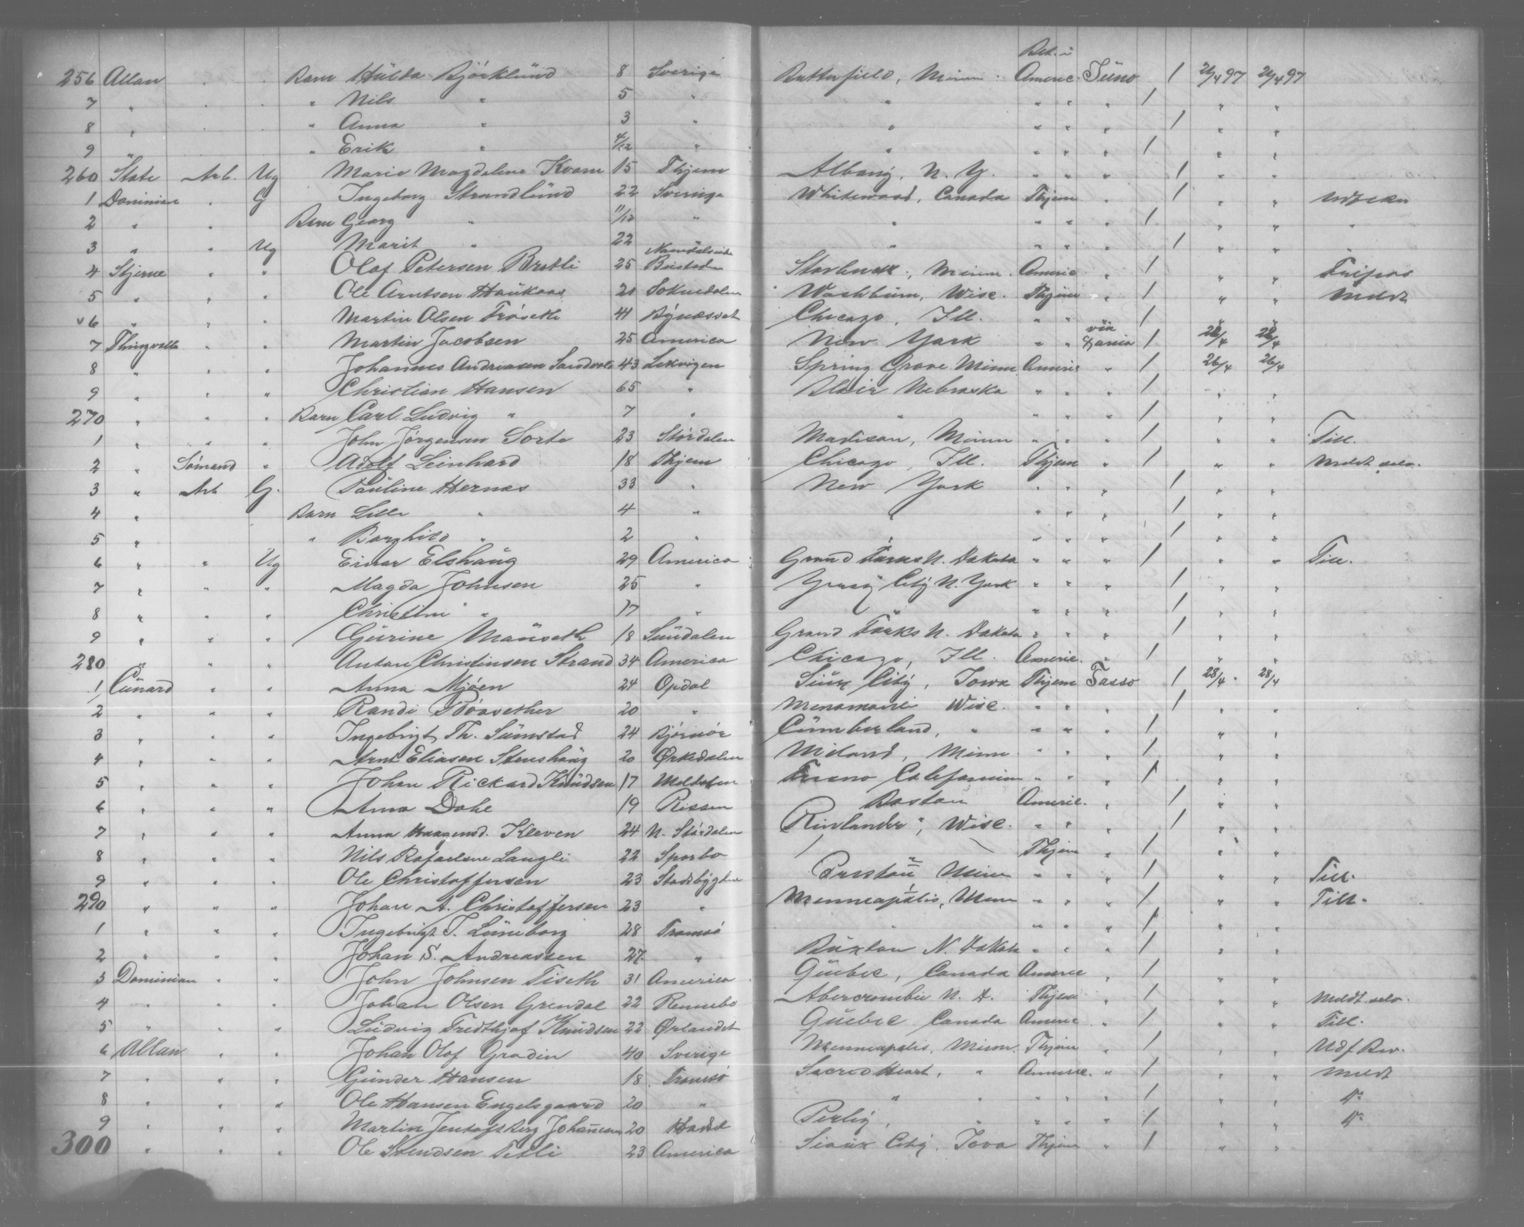 Bet. i
256 Allan " " Barn Hulda Bjørklund 8 Sverige Butterfield, Minn. Americ. Juno 1 26/4 97 26/4 97
7 " " Nils " 5 " " " " " 1 " "
8 " " Anna " 3 " " " " " 1 " "
9 " " Erik " 4/12 " " " " " 1 " "
260 State Arb. Ug Marie Magdalene Kvam 15 Thjem Albany, N. Y. " " " 1 " "
1 Dominion " G Ingeborg Strandlund 22 Sverige Whitewood, Canada Thjem " 1 " "
2 " " Barn Georg " 11/12 " " " " " 1 " " "
3 " " Ug Marit " 22 " " " " " 1 " " "
4 Stjerne " " Olof Petersen Brekli 25 Starbuck, Minn. Americ " 1 " " Fripas
5 " " " Ole Arntsen Haukaas 21 Soknedalen Washburn, Wisc. Thjem " 1 " " Meldt
6 " " " Martin Olsen Frøseth 41 Bynæsset Chicago, Ill. " " 1 " "
7 Thingvalla " " Martin Jacobsen 25 America New York " " via Dania 1 26/4 26/4
8 " " " Johannes Andreasen Sandvik 43 Leksvigen Spring Grove Minn Americ " 1 26/4 26/4
9 " " " Christian Hansen 65 " Blair Nebraska " " " 1 " "
270 " " " Barn Carl Ludvig " 7 " " " " " 1 " "
1 " " " John Jørgensen Sorte 23 Størdalen Madison, Minn " " " 1 " " Till.
2 " Sømand " Adolf Leinhard 18 Thjem Chicago, Ill. Thjem " 1 " " Meldt selv.
3 " Arb G. Pauline Hernæs 33 " New York " " " 1 " "
4 " Barn Lilli " 4 " " " " " 1 " "
5 " " Borghild " 2 " " " " " 1 " "
6 " " Ug Einar Elshaug 29 America Grand Forks N. Dakota " " " 1 " " Till.
7 " " " Magda Johnsen 25 " Yersey City N. York " " " 1 " "
8 " " " Christine " 17 " " " " " 1 " "
9 " " " Gurine Mauseth 18 Sundalen Grand Forks N. Dakota " " " 1 " "
280 " " " Anton Christinsen Strand 34 America Chicago, Ill. Americ. " 1 " "
1 Cunard " " Anna Mjøen 24 Opdal Siux City, Iowa Thjem Tasso 1 28/4 28/4
2 " " " Randi 20 " Menomonie Wisc. " " " 1 " "
3 " " " Ingebrigt Th. Sumstad 24 Bjørnør Cumberland, " " " " 1 " "
4 " " " Arnt Eliasen Stenshaug 20 Ørkedalen Miland, Minn " " " 1 " "
5 " " " Johan Rickard Knudsen 17 Meldalen Fresno California " " " 1 " "
6 " " " Anna Dahl 19 Rissen Boston Americ. " 1 " "
7 " " " Anna Haagensd. Kleven 24 N. Størdalen Rinlander, Wisc. " " " 1 " "
8 " " " Nils Rafaelsen Langli 22 Sparbo Thjem " 1 " "
9 " " " Ole Christoffersen 23 Stadsbygden Minn " " " 1 " " Till.
290 " " " Johan A. Christoffersen 23 " Menneapolis, Minn " " " 1 " " Till.
1 " " " Ingebrigt T. Luneborg 28 Tromsø " " " " 1 " "
2 " " " Johan S. Andreassen 27 " Buxton N. Dakota " " " 1 " "
3 Dominion " " John Johnsen Tiseth 31 America Quebec, Canada Americ " 1 " "
4 " " " Johan Olsen Grendal 22 Rennebo Abercrombie N. D. Thjem " 1 " " Meldt selv.
5 " " " Ludvig Fredthjof Knudsen 22 Ørlandet Quebec Canada Americ " 1 " " Till.
6 Allan " " Johan Olof Grodin 40 Sverige Menneapolis, Minn. Thjem " 1 " " Udf Bev.
7 " " " Gunder Hansen 18 Tromsø Sacred Heart, " Americ. " 1 " " Meldt
8 " " " Ole Hansen Engelsgaard 20 " " " " " 1 " " do
9 " " " Martin Jentoft Berg Johansen 20 Hadsel Perley, " " " " 1 " " do
300 " " " Ole Svendsen Tetli 23 America Sioux City, Iova Thjem " 1 " "